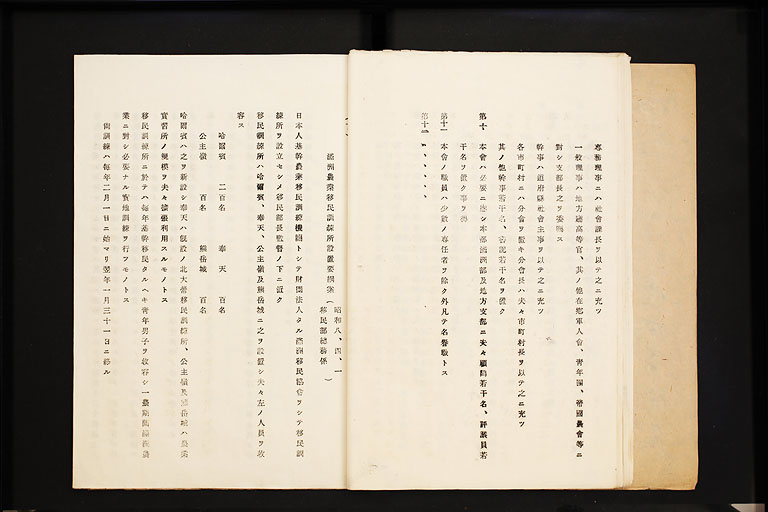 專務理事ニハ社會課長ヲ以テ之ニ充ツ
一般理事ハ地方廳高等官、其ノ他在鄉軍人會、青年團、帝國農會等ニ
對シ支部長之ヲ委囑ス
幹事ハ道府縣社會主事ヲ以テ之ニ充ツ
各市町村ニハ分會ヲ置キ分會長ハ夫々市町村長ヲ以テ之ニ充ツ
其ノ他幹事若干名、書記若干名ヲ置ク
第十 本會ハ必要ニ應シ本部滿洲部及地方支部ニ夫々顧問若干名、評議員若
干名ヲ置ク事ヲ得
第十一 本會ノ職員ハ少數ノ專任者ヲ除ク外凡テ名譽職トス
第十二、、、、、
滿洲農業移民訓練所設置要綱案(
昭和八、四、一
移民部總務係
)
日本人基幹農業移民訓練機關トシテ財團法人タル滿洲移民協會ヲシテ移民訓
練所ヲ設立セシメ移民部長監督ノ下ニ置ク
移民訓練所ハ哈爾賓、奉天、公主嶺及熊岳城ニ之ヲ設置シ夫々左ノ人員ヲ收
容ス
哈爾賓 二百名 奉天 百名
公主嶺 百名 熊岳城 百名
哈爾賓ハ之ヲ新設シ奉天ハ既設ノ北大營移民訓練所、公主嶺及熊岳城ハ農業
實習所ノ規模ヲ夫々擴張利用スルモノトス
移民訓練所ニ於テハ每年基幹移民タルヘキ青年男子ヲ收容シ一ヶ年間滿洲農
業ニ對シ必要ナル實地訓練ヲ行フモノトス
尚訓練ハ每年二月一日ニ始マリ翌年一月三十一日ニ終ル